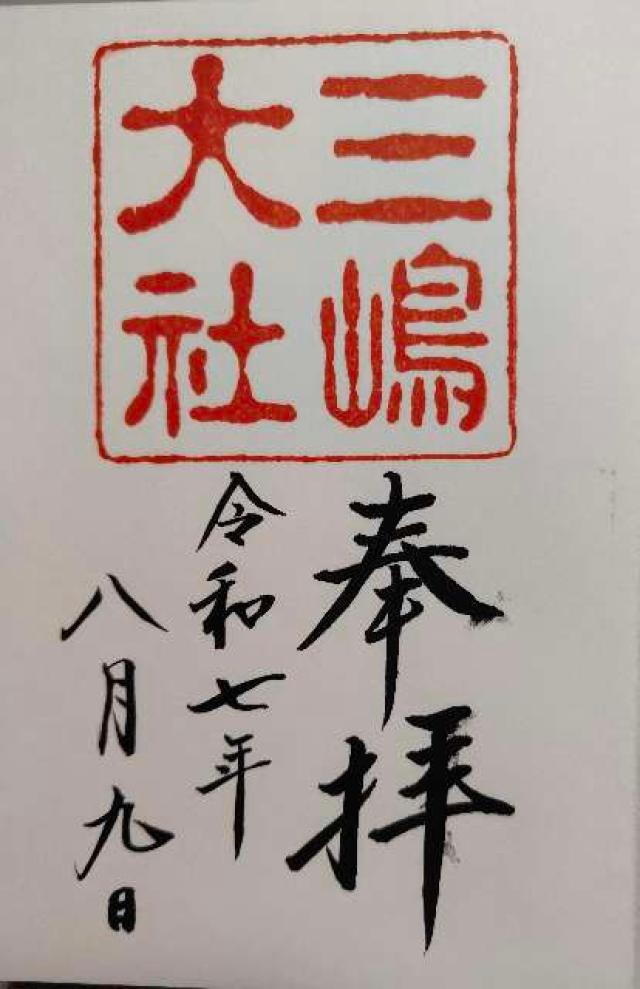 三嶋
大社
奉拝
令和七年
八月九日